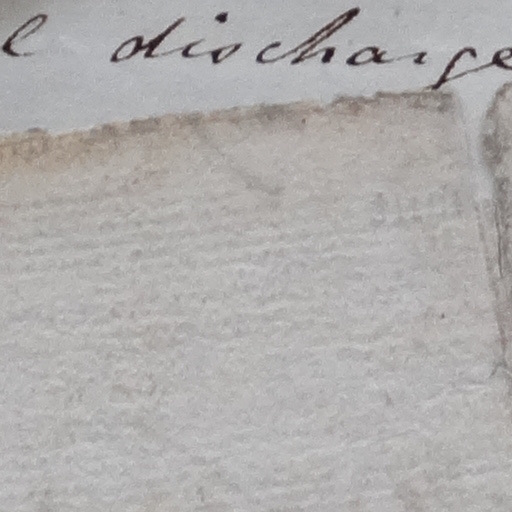 l discharge